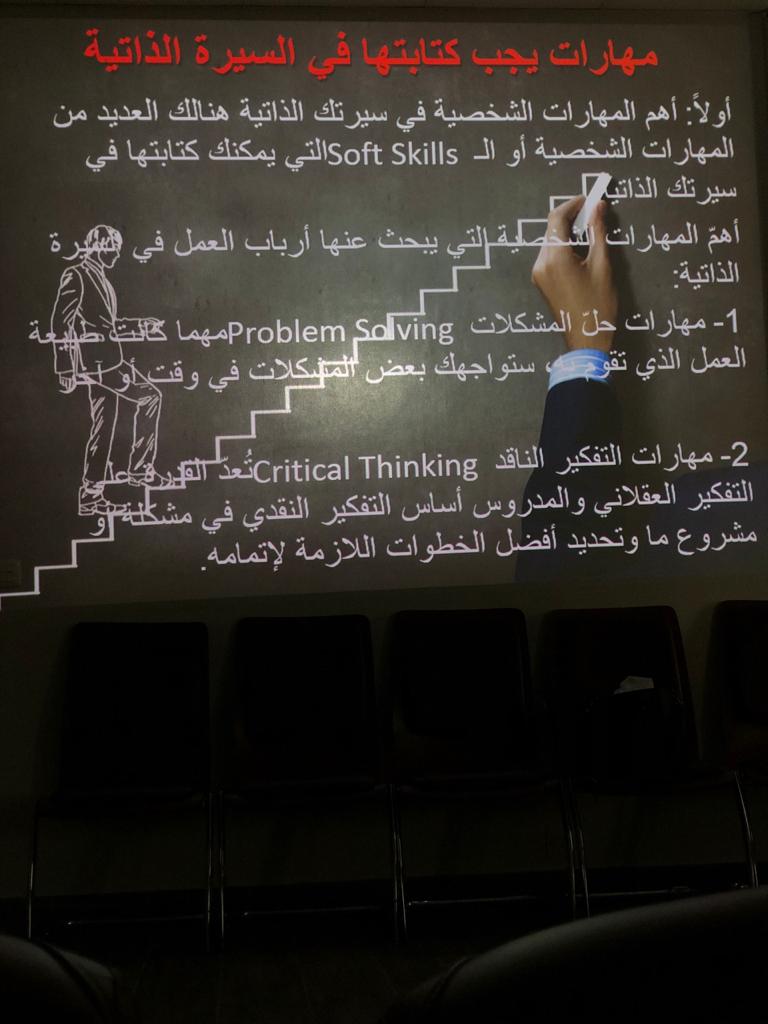 مهارات يجب كتابتها في السيرة الذاتية
أولاً: أهم المهارات الشخصية في سيرتك الذاتية هنالك العديد من
المهارات الشخصية أو الـ Soft Skillsالتي يمكنك كتابتها في
سيرتك الذاتية
أهمّ المهارات الشخصية التي يبحث عنها أرباب العمل في السيرة
الذاتية:
1- مهارات حلّ المشكلات Problem Solvingمهما كانت طبيعة
العمل الذي تقوم به، ستواجهك بعض المشكلات في وقت أو آخر
2- مهارات التفكير الناقد Critical Thinkingتُعدّ القدرة على
التفكير العقلاني والمدروس أساس التفكير النقدي في مشكلة أو
مشروع ما وتحديد أفضل الخطوات اللازمة لإتمامه.